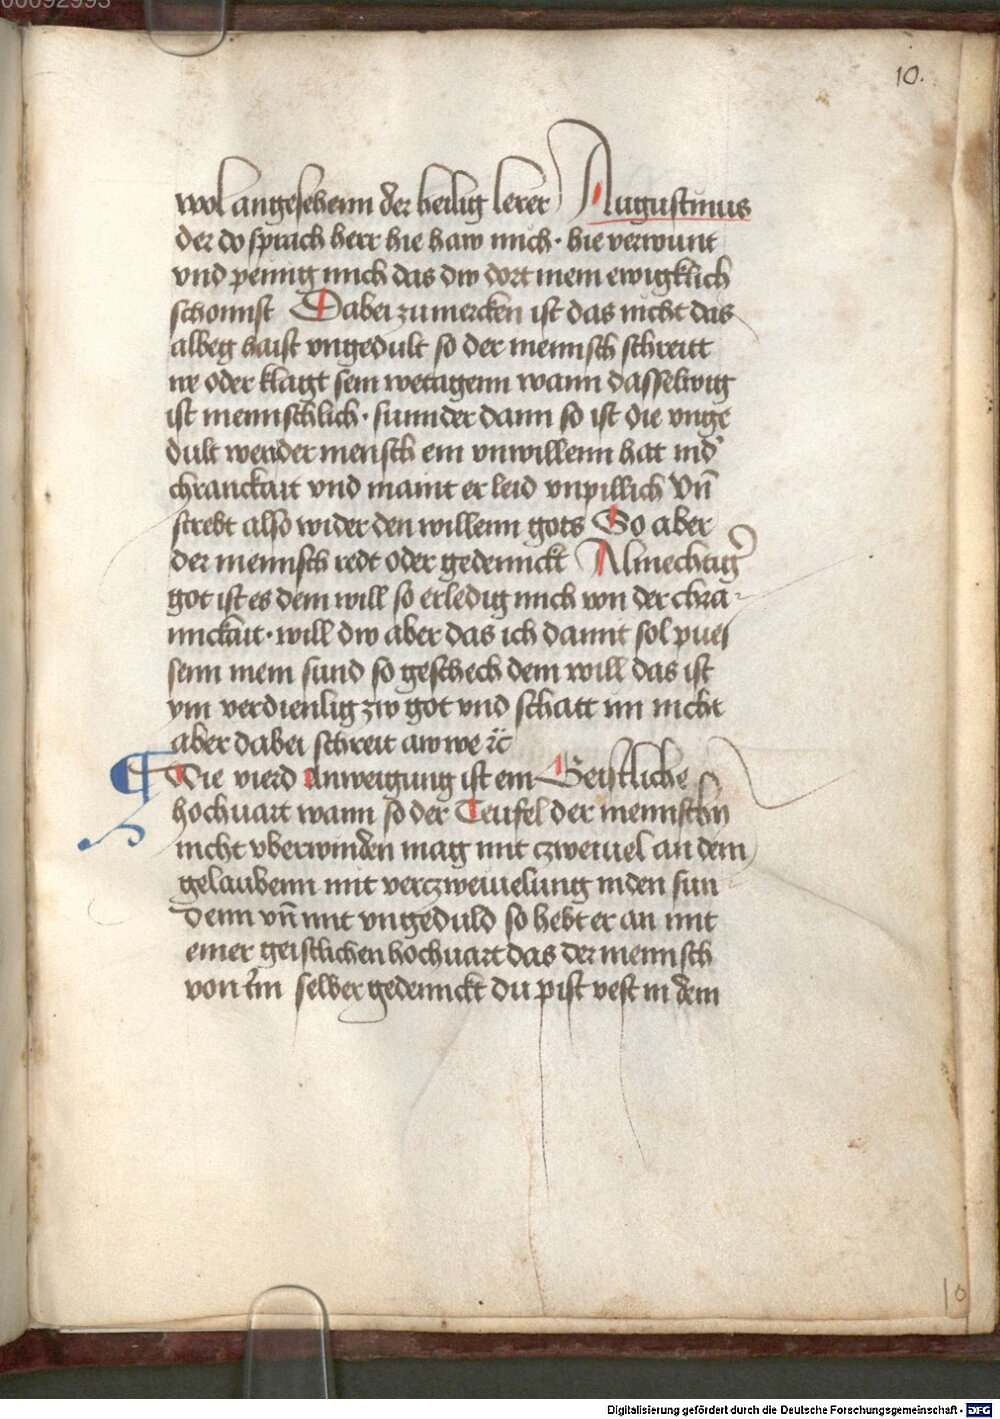 00092993
10.
wol angesehenn der heilig lerer Augustinus
der do sprach herr hie haw mich · hie verwunt
vnd peinig mich das dw dort mein ewigklich
schonnst Dabei zu mercken ist das nicht das
albeg haist vngedult so der mennsch schreitt
we oder klagt sein wetagenn wann dasselbig
ist mennschlich · sunnder dann so ist die vnge
dult wen der mensch ein vnwillenn hat in d'
chranckait vnd maint er leid vnpillich Vn̄
strebt also wider den willenn gots So aber
der mennsch redt oder gedennckt Almechtig'
got ist es dein will so erledig mich von der chra-
nnckait · will dw aber das ich damit sol pues
senn mein sund so geschech dein will das ist
ym verdienlig zw got vnd schatt im nicht
aber dabei schreit aw we ꝛc̈
Die vierd Anweigung ist ein Geistliche
hochuart wann so der Teufel der mennschn̄
nicht vberwinden mag mit czweiuel an dem
gelaubenn mit verczweiuelung in den sun
denn vn̄ mit vngeduld so hebt er an mit
einer geistlichen hochuart das der mennsch
von im selber gedennckt du pist vest in dem
10
Digitalisierung gefördert durch die Deutsche Forschungsgemeinschaft - DFG